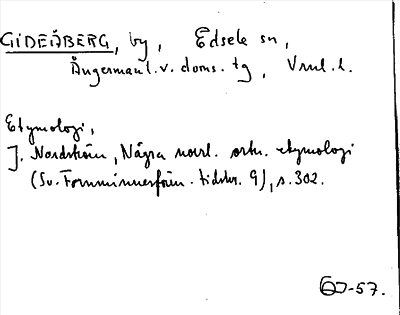 GIDEÅBERG, by, Edsele sn,
Ångermanl. v. doms. tg, Vnrl. l.
Etymologi,
J. Nordström, Några norrl. ortn. etymologi
(Sv. Fornminnesfören. tidskr. 9), s. 302.
-57.